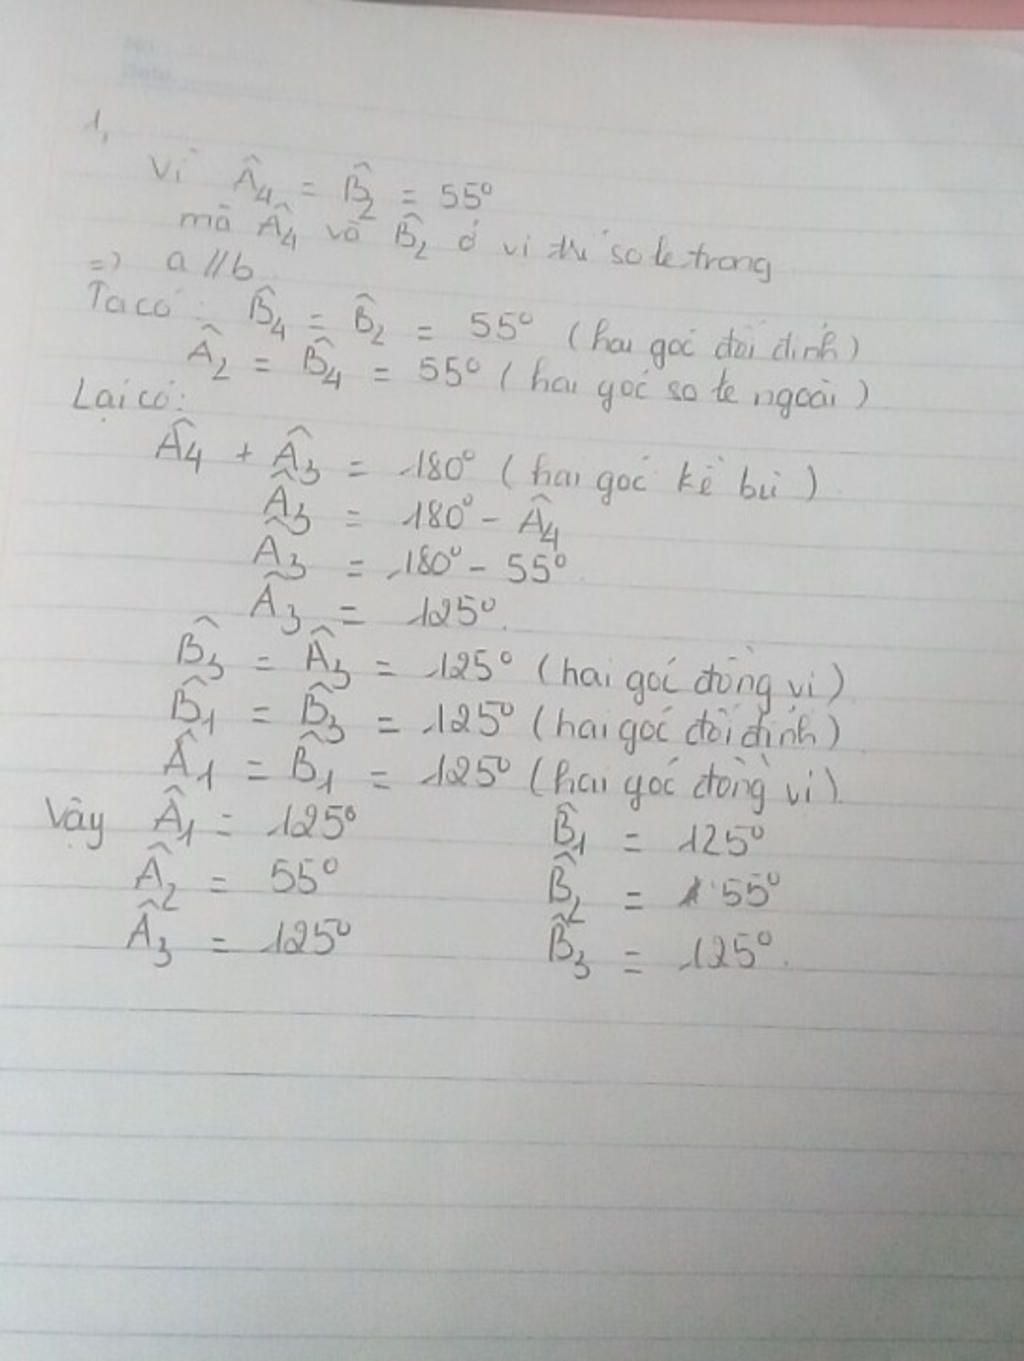 1,
Vì Â₄ = B̂₂ = 55°
mà Â₄ và B̂₂ ở vị thí so le trong
=> a // b
Ta có: B̂₄ = B̂₂ = 55° (hai góc đối đỉnh)
Â₂ = B̂₄ = 55° (hai góc so le ngoài)
Lại có:
Â₄ + Â₃ = 180° (hai góc kề bù)
Â₃ = 180° - Â₄
Â₃ = 180° - 55°
Â₃ = 125°.
B̂₃ = Â₃ = 125° (hai góc đồng vị)
B̂₁ = B̂₃ = 125° (hai góc đối đỉnh)
Â₁ = B̂₁ = 125° (hai góc đồng vị)
Vậy Â₁ = 125° B̂₁ = 125°
Â₂ = 55° B̂₂ = 55°
Â₃ = 125° B̂₃ = 125°.